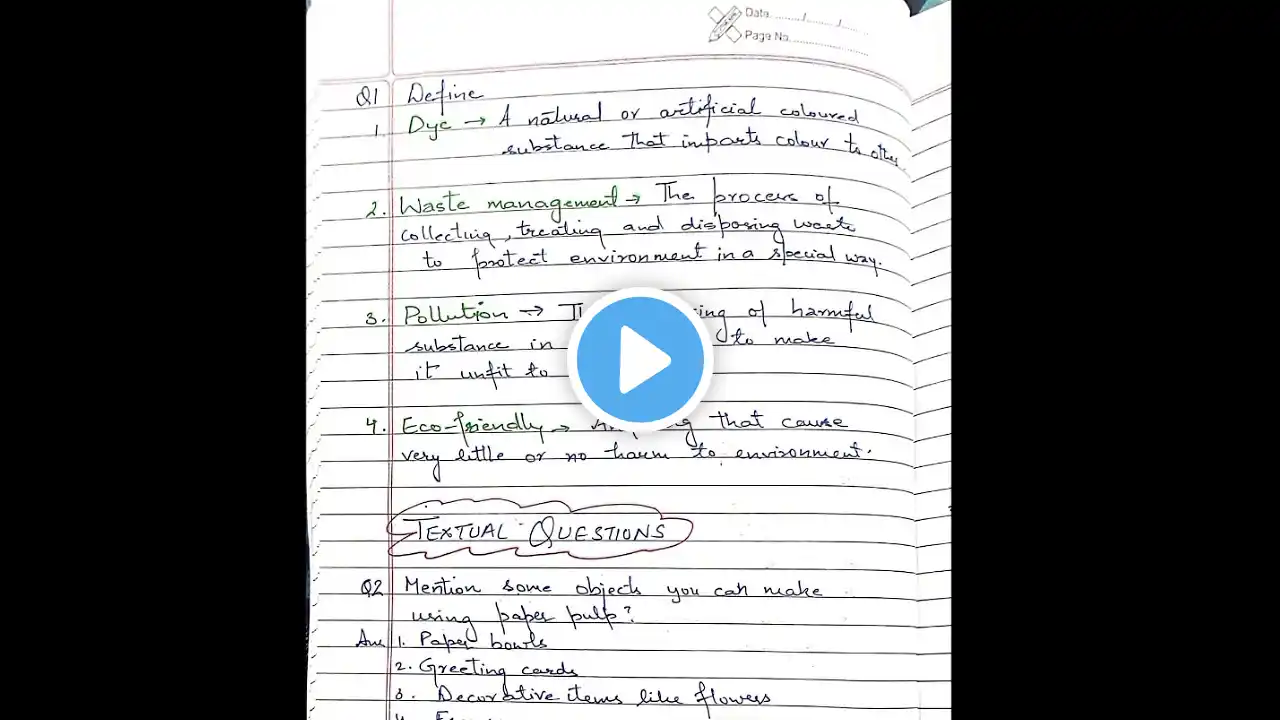 Date ......./......./.......
Page No. ....................
Q1 Define
1. Dye → A natural or artificial coloured
substance that imparts colour to other.
2. Waste management → The process of
collecting, treating and disposing waste
to protect environment in a special way.
3. Pollution → of harmful
substance in to make
it unfit to
4. Eco-friendly → that cause
very little or no harm to environment.
TEXTUAL QUESTIONS
Q2 Mention some objects you can make
using paper pulp?
Ans 1. Paper bowls
2. Greeting cards
3. Decorative items like flowers
4.